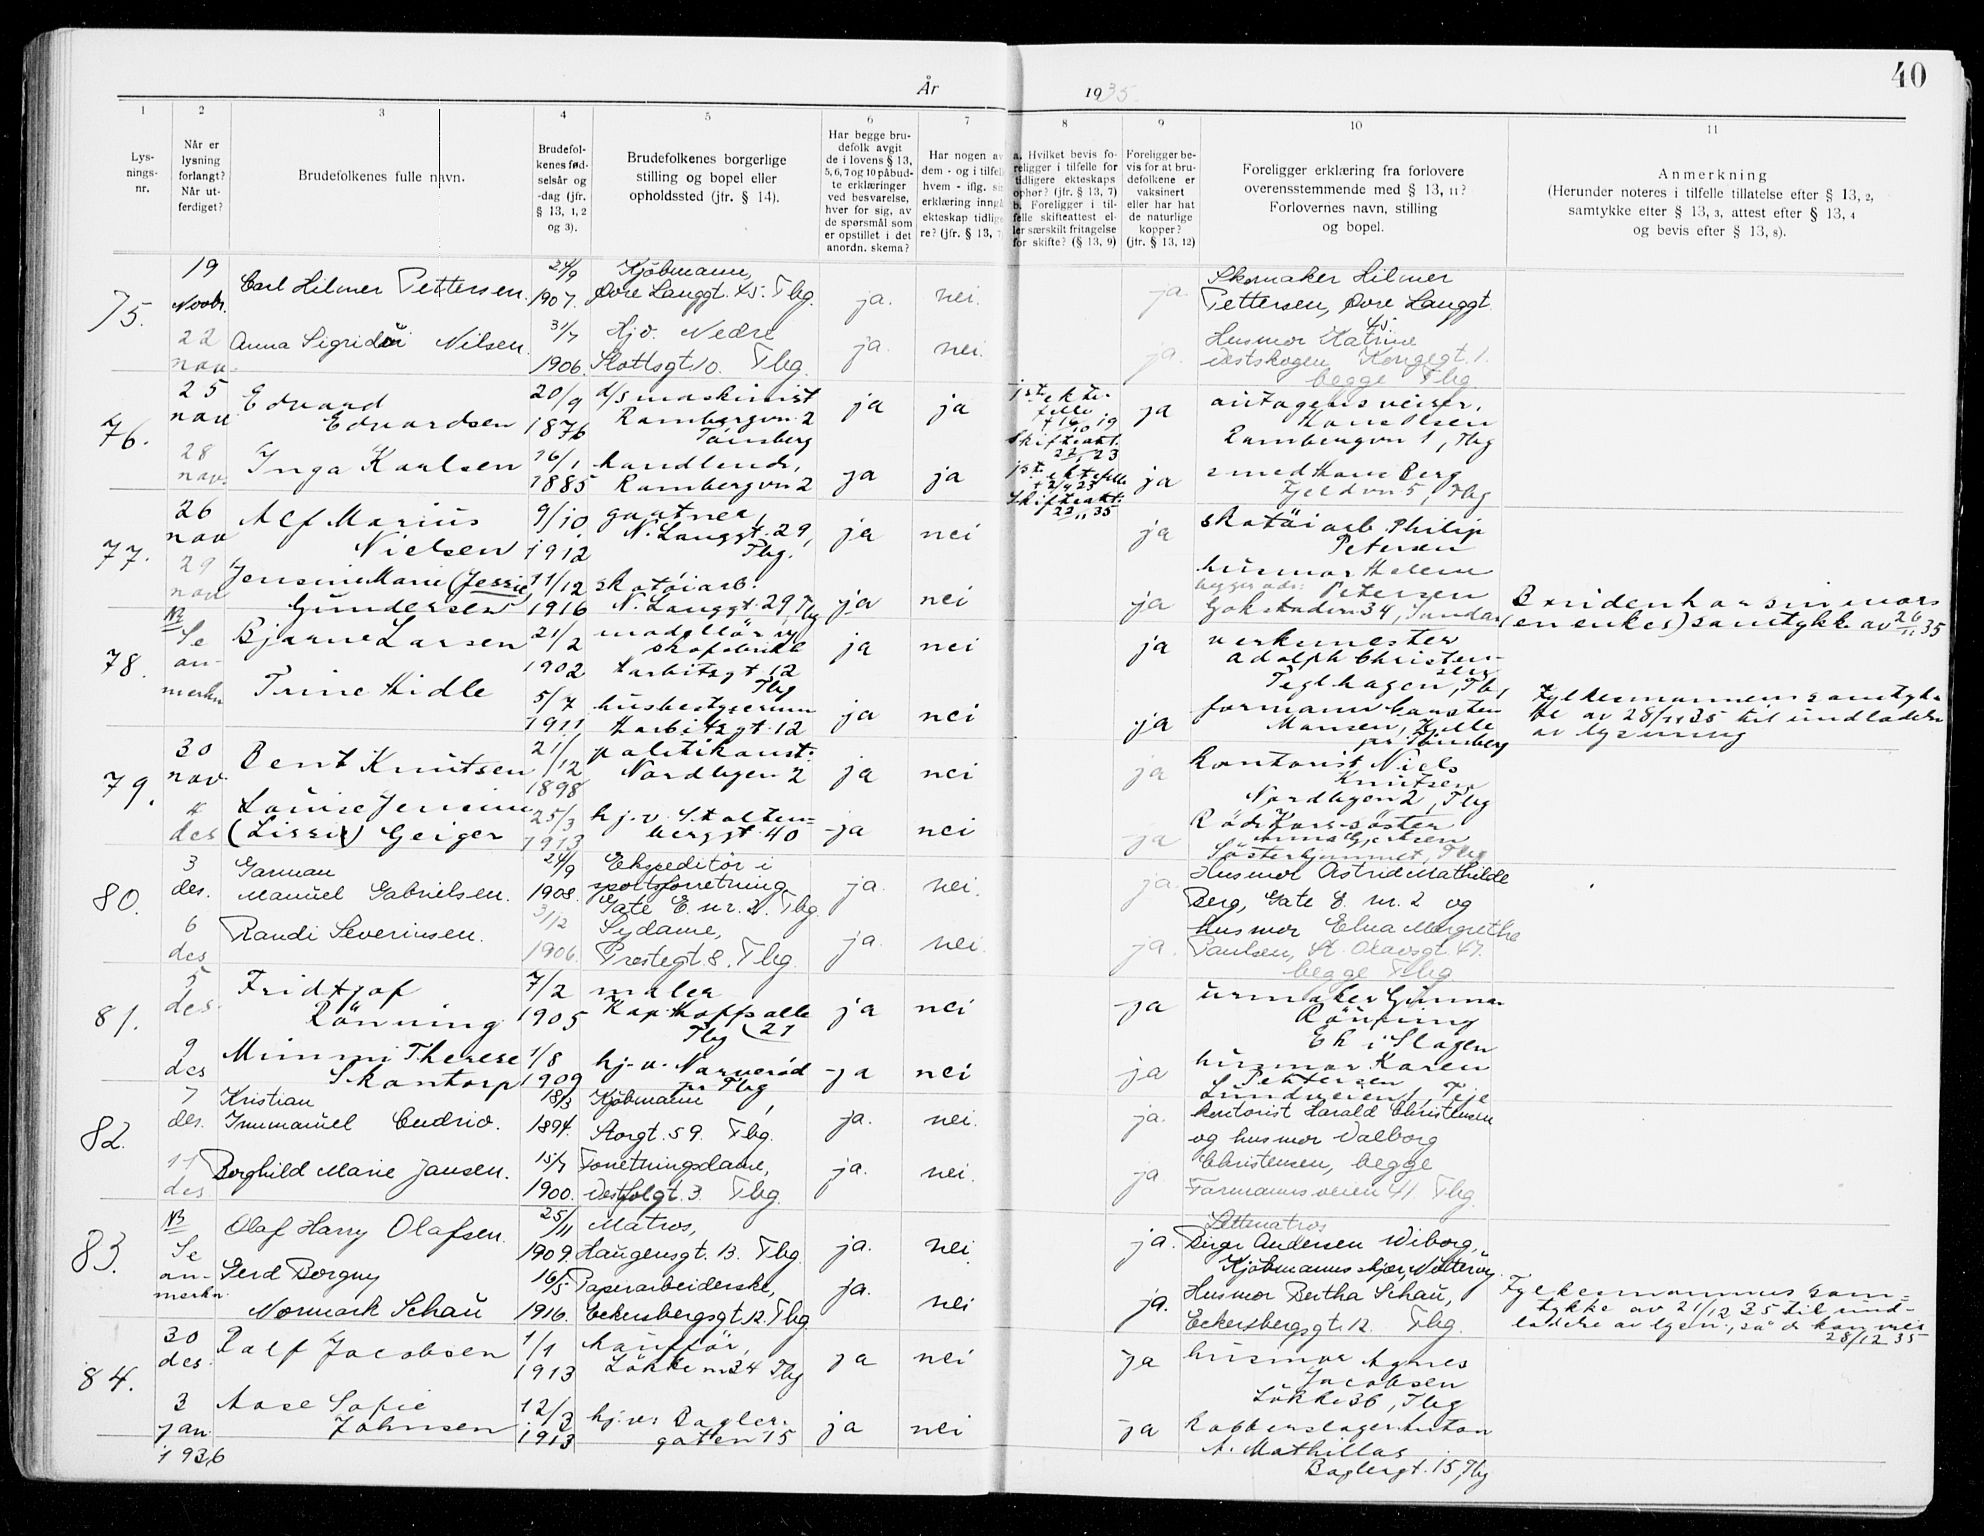 40
År 1935.
1 2 3 4 5 6 7 8 9 10 11
Lys-
nings-
nr.
Når er
lysning
forlangt?
Når ut-
ferdiget?
Brudefolkenes fulle navn.
Brudefol-
kenes fød-
selsår og
-dag (jfr.
§ 13, 1, 2
og 3).
Brudefolkenes borgerlige
stilling og bopel eller
opholdssted (jfr. § 14).
Har begge bru-
defolk avgit
de i lovens § 13,
5, 6, 7 og 10 påbud-
te erklæringer
ved besvarelse,
hver for sig, av
de spørsmål som
er opstillet i det
anordn. skema?
Har nogen av
dem - og i tilfelle
hvem - iflg. sin
erklæring inngå
ekteskap tidlige
re? (jfr. § 13, 7
a. Hvilket bevis fo-
religger i tilfelle for
tidligere ekteskaps
ophør? (jfr. § 13, 7)
b. Foreligger i til-
felle skifteattest el-
ler særskilt fritagelse
for skifte? (§ 13, 9)
Foreligger be-
vis for at bru-
defolkene er
vaksinert
eller har hat
de naturlige
kopper?
(jfr. § 13, 12)
Foreligger erklæring fra forlovere
overensstemmende med § 13, 11?
Forlovernes navn, stilling
og bopel.
Anmerkning
(Herunder noteres i tilfelle tillatelse efter § 13, 2,
samtykke efter § 13, 3, attest efter § 13, 4
og bevis efter § 13, 8).
75.
19
Novbr.
Carl Hilmer Pettersen.
24/9
1907.
Kjøbmann,
Øvre Langgt. 45. Tbg.
ja. nei. ja.
Skomaker Hilmer
Pettersen, Øvre Langgt.
45.
22
nov.
Anna Nilsen.
31/7
1906.
Hj. v. Nedre
Slottsgt. 10. Tbg.
ja. nei. ja.
Husmor Katrine
Vestskogen Kongegt. 1.
begge Tbg.
76.
25
nov
Edvard
Edvardsen
20/9
1876
d/s maskinist
Rambergvn. 2
Tönsberg
ja ja
ekte-
felle
skifteatt.
ja
Hans Olsen
Rambergvn 1, Tbg
28
nov.
Inga Karlsen
16/1
1885
handlende,
Rambergvn 2
ja ja
ektefelle
skifteatt.
ja
smed Hans Berg
Fjeldvn 5, Tbg
77.
26
nov
Alf Marius
Nielsen
9/10
1912
gartner,
N. Langgt. 29,
Tbg.
ja nei ja
skotöiarb. Philip
Petersen
29
nov
Jensine Marie (Jessie)
Gundersen
11/12
1916
skotöiarb.
N. Langgt. 29, Tbg
ja nei ja
husmor Helene
Petersen
34, Sandar
Bruden har sin mors
(en enkes) samtykke av 26/11 35
78.
NB
Se
an-
merkn
Bjarne Larsen
21/2
1902
modellör
skofabrikk
Harbitzgt. 12
Tbg
ja nei ja
verkmester
Adolph Christen-
sen
Teglhagen, Tbg,
Trine Hidle
5/7
1911
husbestyrerinne
Harbitzgt. 12
ja nei ja
formann Carsten
Hansen,
pr. Tönsberg
Fylkesmannens samtyk-
ke av 28/11 35 til undladelse
av lysning
79.
30
nov
Bent Knutsen
21/12
1898
politikonst.
Nordbyen 2
ja nei ja
kontorist Niels
Knutsen
Nordbyen 2, Tbg
4
des
Louise Jensine
(Lissie) Geiger
25/3
1913
hj. v. Stolten-
berggt. 40
ja nei ja
Röde Kors-söster
Gjertsen
Sösterhjemmet, Tbg
80.
3
des.
Garman
Manuel Gabrielsen.
24/9
1908.
Ekspeditør i
sportsforretning
Gate E. nr. 2. Tbg
ja. nei. ja.
Husmor Astrid Mathilde
Berg, Gate E. nr. 2 og
6
des
Randi Severinsen.
31/12
1906.
Sydame,
Prestegt. 8. Tbg.
ja. nei. ja.
husmor Elna Margrethe
Paulsen, St. Olavsgt. 47.
begge Tbg
81.
5
des.
Fridtjof
Rönning
7/2
1905
maler
Kap. Hoffs alle
Tbg 21
ja nei ja
urmaker Gunnar
Rönning
Ek i Slagen
9
des
Mimmi Therese
Skontorp
1/8
1909
hj. v. Narverød
pr Tbg
ja nei ja
husmor Karen
Pettersen
Lundveien 1, Teie
82.
7
des.
Kristian
Immanuel Cudrio.
18/3
1894.
Kjøbmann,
Storgt. 59. Tbg.
ja. nei. ja.
kontorist Harald Christensen
og husmor Valborg
11
des
Borghild Marie Jansen.
15/7
1900.
Forretningsdame,
Vestfolgt. 3. Tbg.
ja. nei. ja.
Christensen, begge
Farmannsveien 41. Tbg.
83.
NB
Se
an-
merkn.
Olaf Harry Olafsen.
25/11
1909.
Matros,
Haugensgt. 13. Tbg.
ja. nei ja.
Lettmatros
Birger Andersen Wiborg,
Kjøbmannsskjær, Nötterøy.
Gerd Borgny
Normark Schau
16/5
1916.
Papirarbeiderske,
Eckersbergsgt. 12. Tbg.
ja. nei ja.
Husmor Bertha Schau,
Eckersbergsgt. 12. Tbg.
Fylkesmannens sam-
tykke av 21/12 35 til und-
ladelse av lysn.,
28/12 35
84.
30
des.
Ralf Jacobsen
1/1
1913
haufför,
Lökke 34 Tbg
ja nei ja
husmor Agnes
Jacobsen
Lökke 36, Tbg
3
jan
1936
Aase Sofie
Johnsen
12/3
1913
hj. v. Bagler-
gaten 15
ja nei ja
kobberslager Anton
A. Mathillas
Baglergt. 15, Tbg